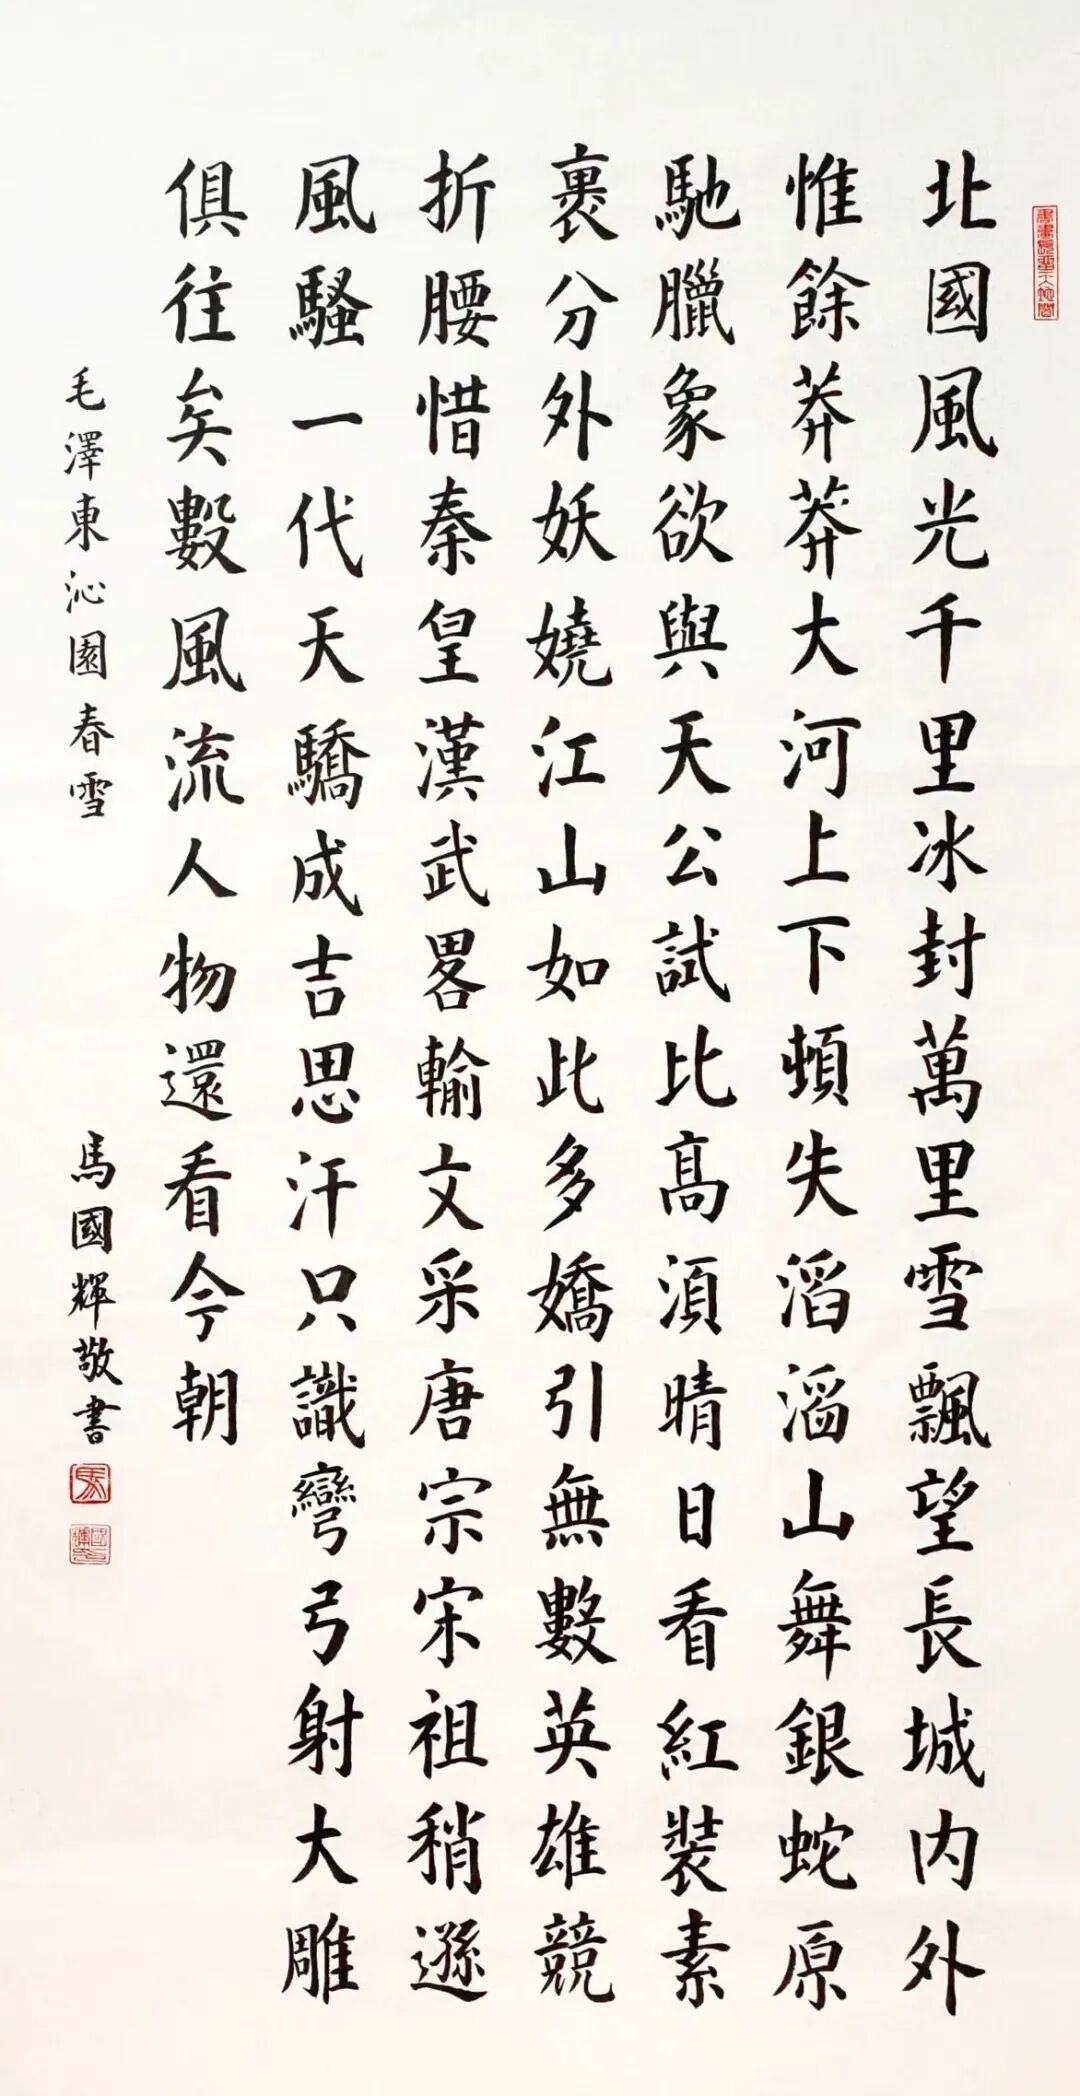 北國風光千里冰封萬里雪飄望長城内外
惟餘莽莽大河上下頓失滔滔山舞銀蛇原
馳臘象欲與天公試比髙湏晴日看紅裝素
裹分外妖嬈江山如此多嬌引無數英雄競
折腰惜秦皇漢武畧輸文采唐宗宋祖稍遜
風騷一代天驕成吉思汗只識彎弓射大雕
俱往矣數風流人物還看今朝
毛澤東沁園春雪
馬國輝敬書
馬